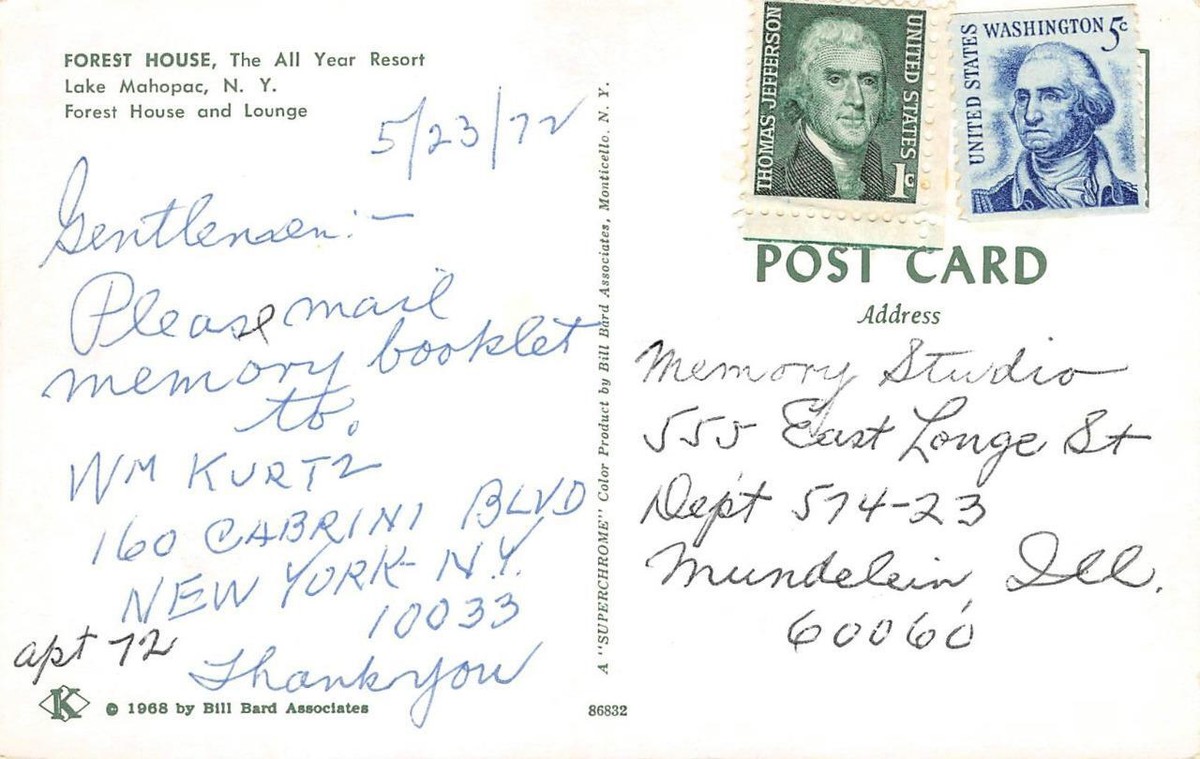 FOREST HOUSE, The All Year Resort
Lake Mahopac, N. Y.
Forest House and Lounge
5/23/72
Gentlemen:-
Please mail
memory booklet
to.
WM KURTZ
160 CABRINI BLVD
NEW YORK- N.Y.
10033
apt 72
Thank you
K
© 1968 by Bill Bard Associates
A "SUPERCHROME" Color Product by Bill Bard Associates, Monticello, N. Y.
86832
THOMAS JEFFERSON
UNITED STATES
1c
UNITED STATES
WASHINGTON 5c
POST CARD
Address
Memory Studio
555 East Longe St
Dept 574-23
Mundelein, Ill.
60060